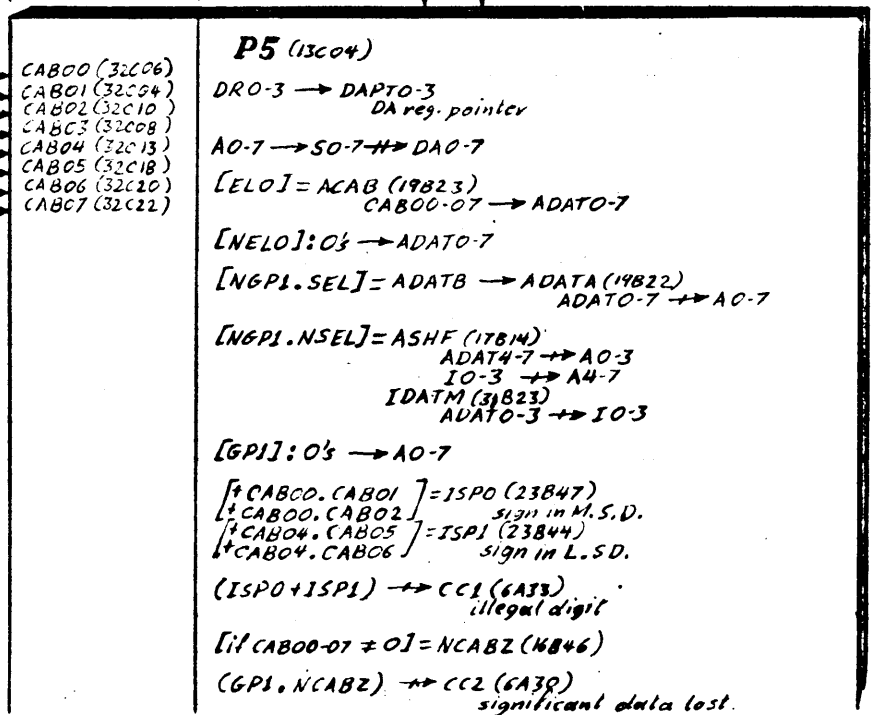 CAB00 (32C06)
CAB01 (32C04)
CAB02 (32C10)
CAB03 (32C08)
CAB04 (32C13)
CAB05 (32C18)
CAB06 (32C20)
CAB07 (32C22)
P5 (13C04)
DR0-3 → DAPT0-3
DA reg. pointer
A0-7 → S0-7 ⇸ DA0-7
[ELO] = ACAB (19B23)
CAB00-07 → ADAT0-7
[NELO]: O's → ADAT0-7
[NGP1.SEL] = ADATB → ADATA (19B22)
ADAT0-7 ⇸ A0-7
[NGP1.NSEL] = ASHF (17B14)
ADAT4-7 ⇸ A0-3
I0-3 ⇸ A4-7
IDATM (31B23)
ADAT0-3 ⇸ I0-3
[GP1]: O's → A0-7
[+CAB00.CAB01] = ISP0 (23B47)
[+CAB00.CAB02] sign in M.S.D.
[+CAB04.CAB05] = ISP1 (23B44)
[+CAB04.CAB06] sign in L.SD.
(ISP0+ISP1) ⇸ CC1 (6A33)
illegal digit
[if CAB00-07 ≠ 0] = NCABZ (16B46)
(GP1.NCABZ) ⇸ CC2 (6A38)
significant data lost.